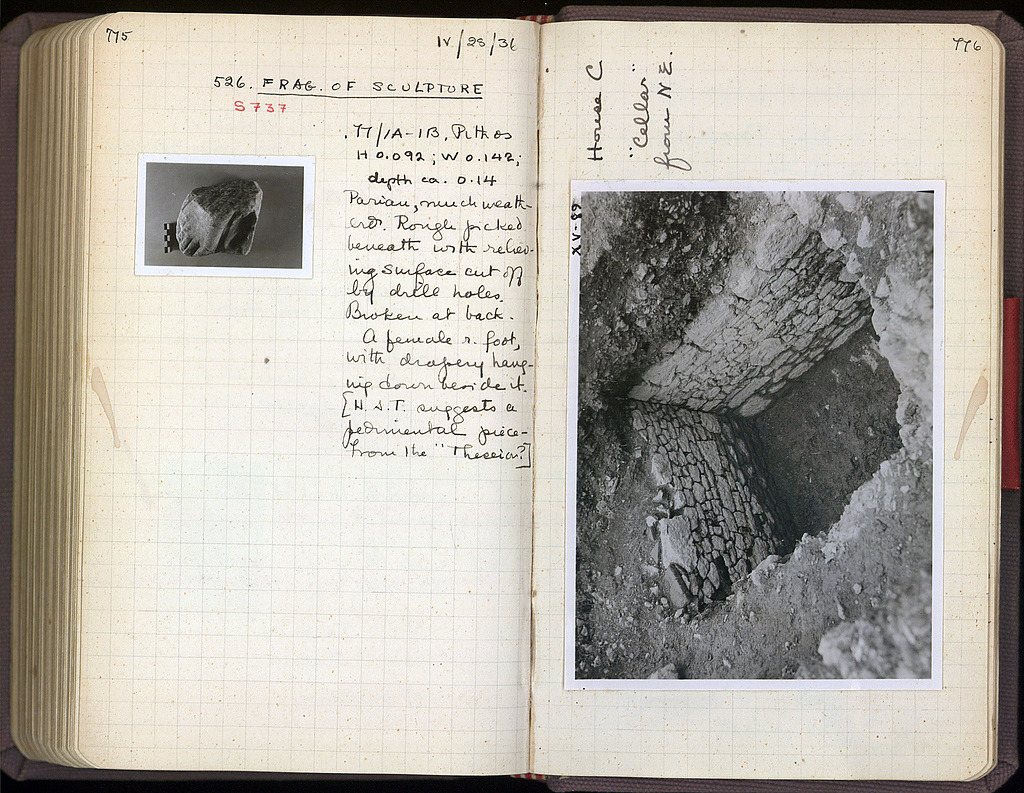 775
IV/28/36
526. FRAG. OF SCULPTURE
S 737
77/IA-IB, Pithos
H 0.092; W 0.142;
depth ca. 0.14
Parian, much weath-
ered. Rough picked
beneath with reliev-
ing surface cut off
by drill holes.
Broken at back.
A female r. foot,
with drapery hang-
ing down beside it.
[H.A.T. suggests a
pedimental piece
from the "Theseion"?]
776
House C
"Cellar"
from N E.
XV-89